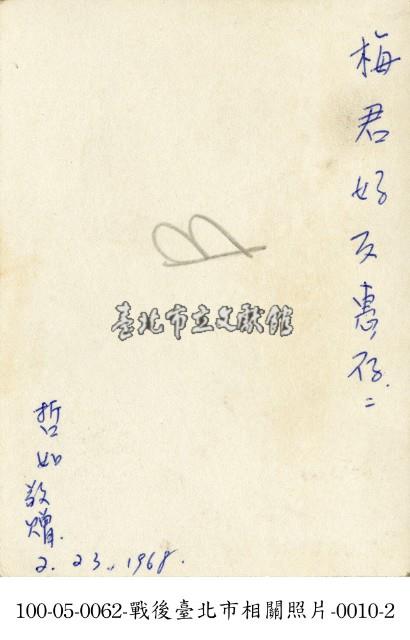 梅君好友惠存
臺北市立文獻館
哲如
敬贈
2.23.1968.
100-05-0062-戰後臺北市相關照片-0010-2